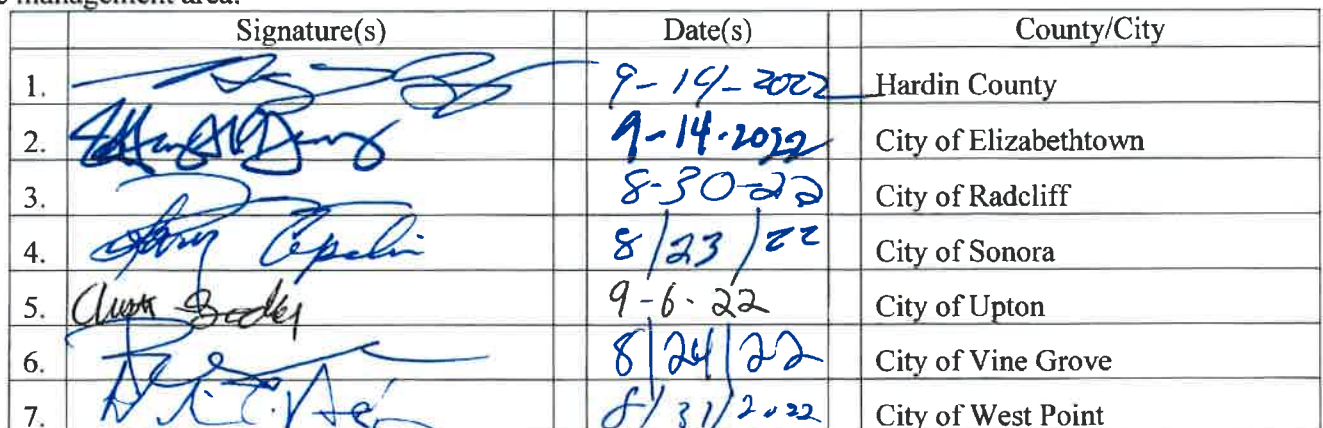 management area.
Signature(s) Date(s) County/City
1. 9-14-2022 Hardin County
2. 9-14-2022 City of Elizabethtown
3. 8-30-22 City of Radcliff
4. 8/23/22 City of Sonora
5. 9-6-22 City of Upton
6. 8/24/22 City of Vine Grove
7. 8/31/2022 City of West Point